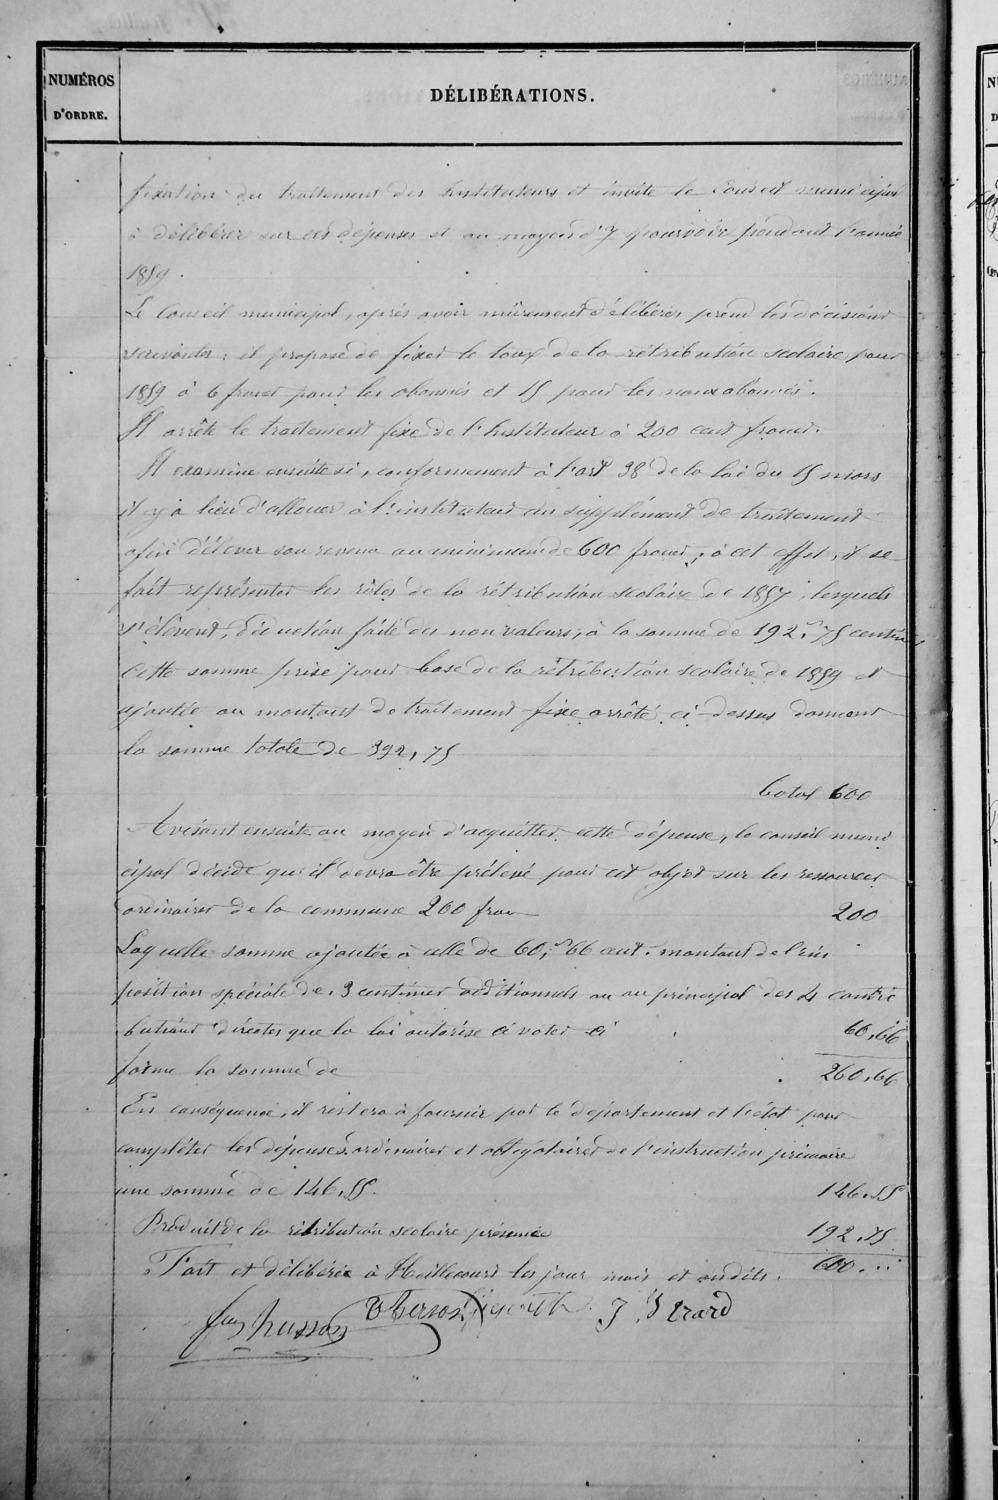 NUMÉROS
D'ORDRE.
DÉLIBÉRATIONS.
fixation du traitement des Instituteurs et invite le Conseil municipal
à délibérer sur ces dépenses et au moyen d'y pourvoir pendant l'année
1859.
Le Conseil municipal, après avoir mûrement délibérer prend les décisions
suivantes : il propose de fixer le taux de la rétribution scolaire pour
1859 à 6 francs pour les abonnés et 15 pour les non abonnés.
Il arrête le traitement fixe de l'Instituteur à 200 cent francs.
Il examine ensuite si, conformément à l'art 38 de la loi du 15 mars
il y a lieu d'allouer à l'instituteur un supplément de traitement
afin d'élever son revenu au minimum de 600 francs, à cet effet, il se
fait représenter les rôles de la rétribution scolaire de 1857, lesquels
s'élèvent, déduction faite des non valeurs, à la somme de 192,f 75 centimes
cette somme prise pour base de la rétribution scolaire de 1859 et
ajoutée au montant de traitement fixe arrêté ci-dessus donnent
la somme totale de 392,75
total 600
Avisant ensuite au moyen d'acquitter cette dépense, le conseil muni
cipal décide qu'il devra être prélevé pour cet objet sur les ressources
ordinaires de la commune 200 frans
200
Laquelle somme ajoutée à celle de 60,f 66 cent. montant de l'im
position spéciale de 3 centimes additionnels au au principal des 4 contri
butions directes que la loi autorise à voter ci
60,66
forme la somme de
260,66
En conséquence, il restera à fournir par le département et l'état pour
compléter les dépenses ordinaires et obligatoires de l'instruction primaire
une somme de 146,55.
146.55
Produit de la rétribution scolaire présumée
192,75
600...
Fait et délibérée à Heillecourt les jour mois et an dits.
husson
J. Gérard